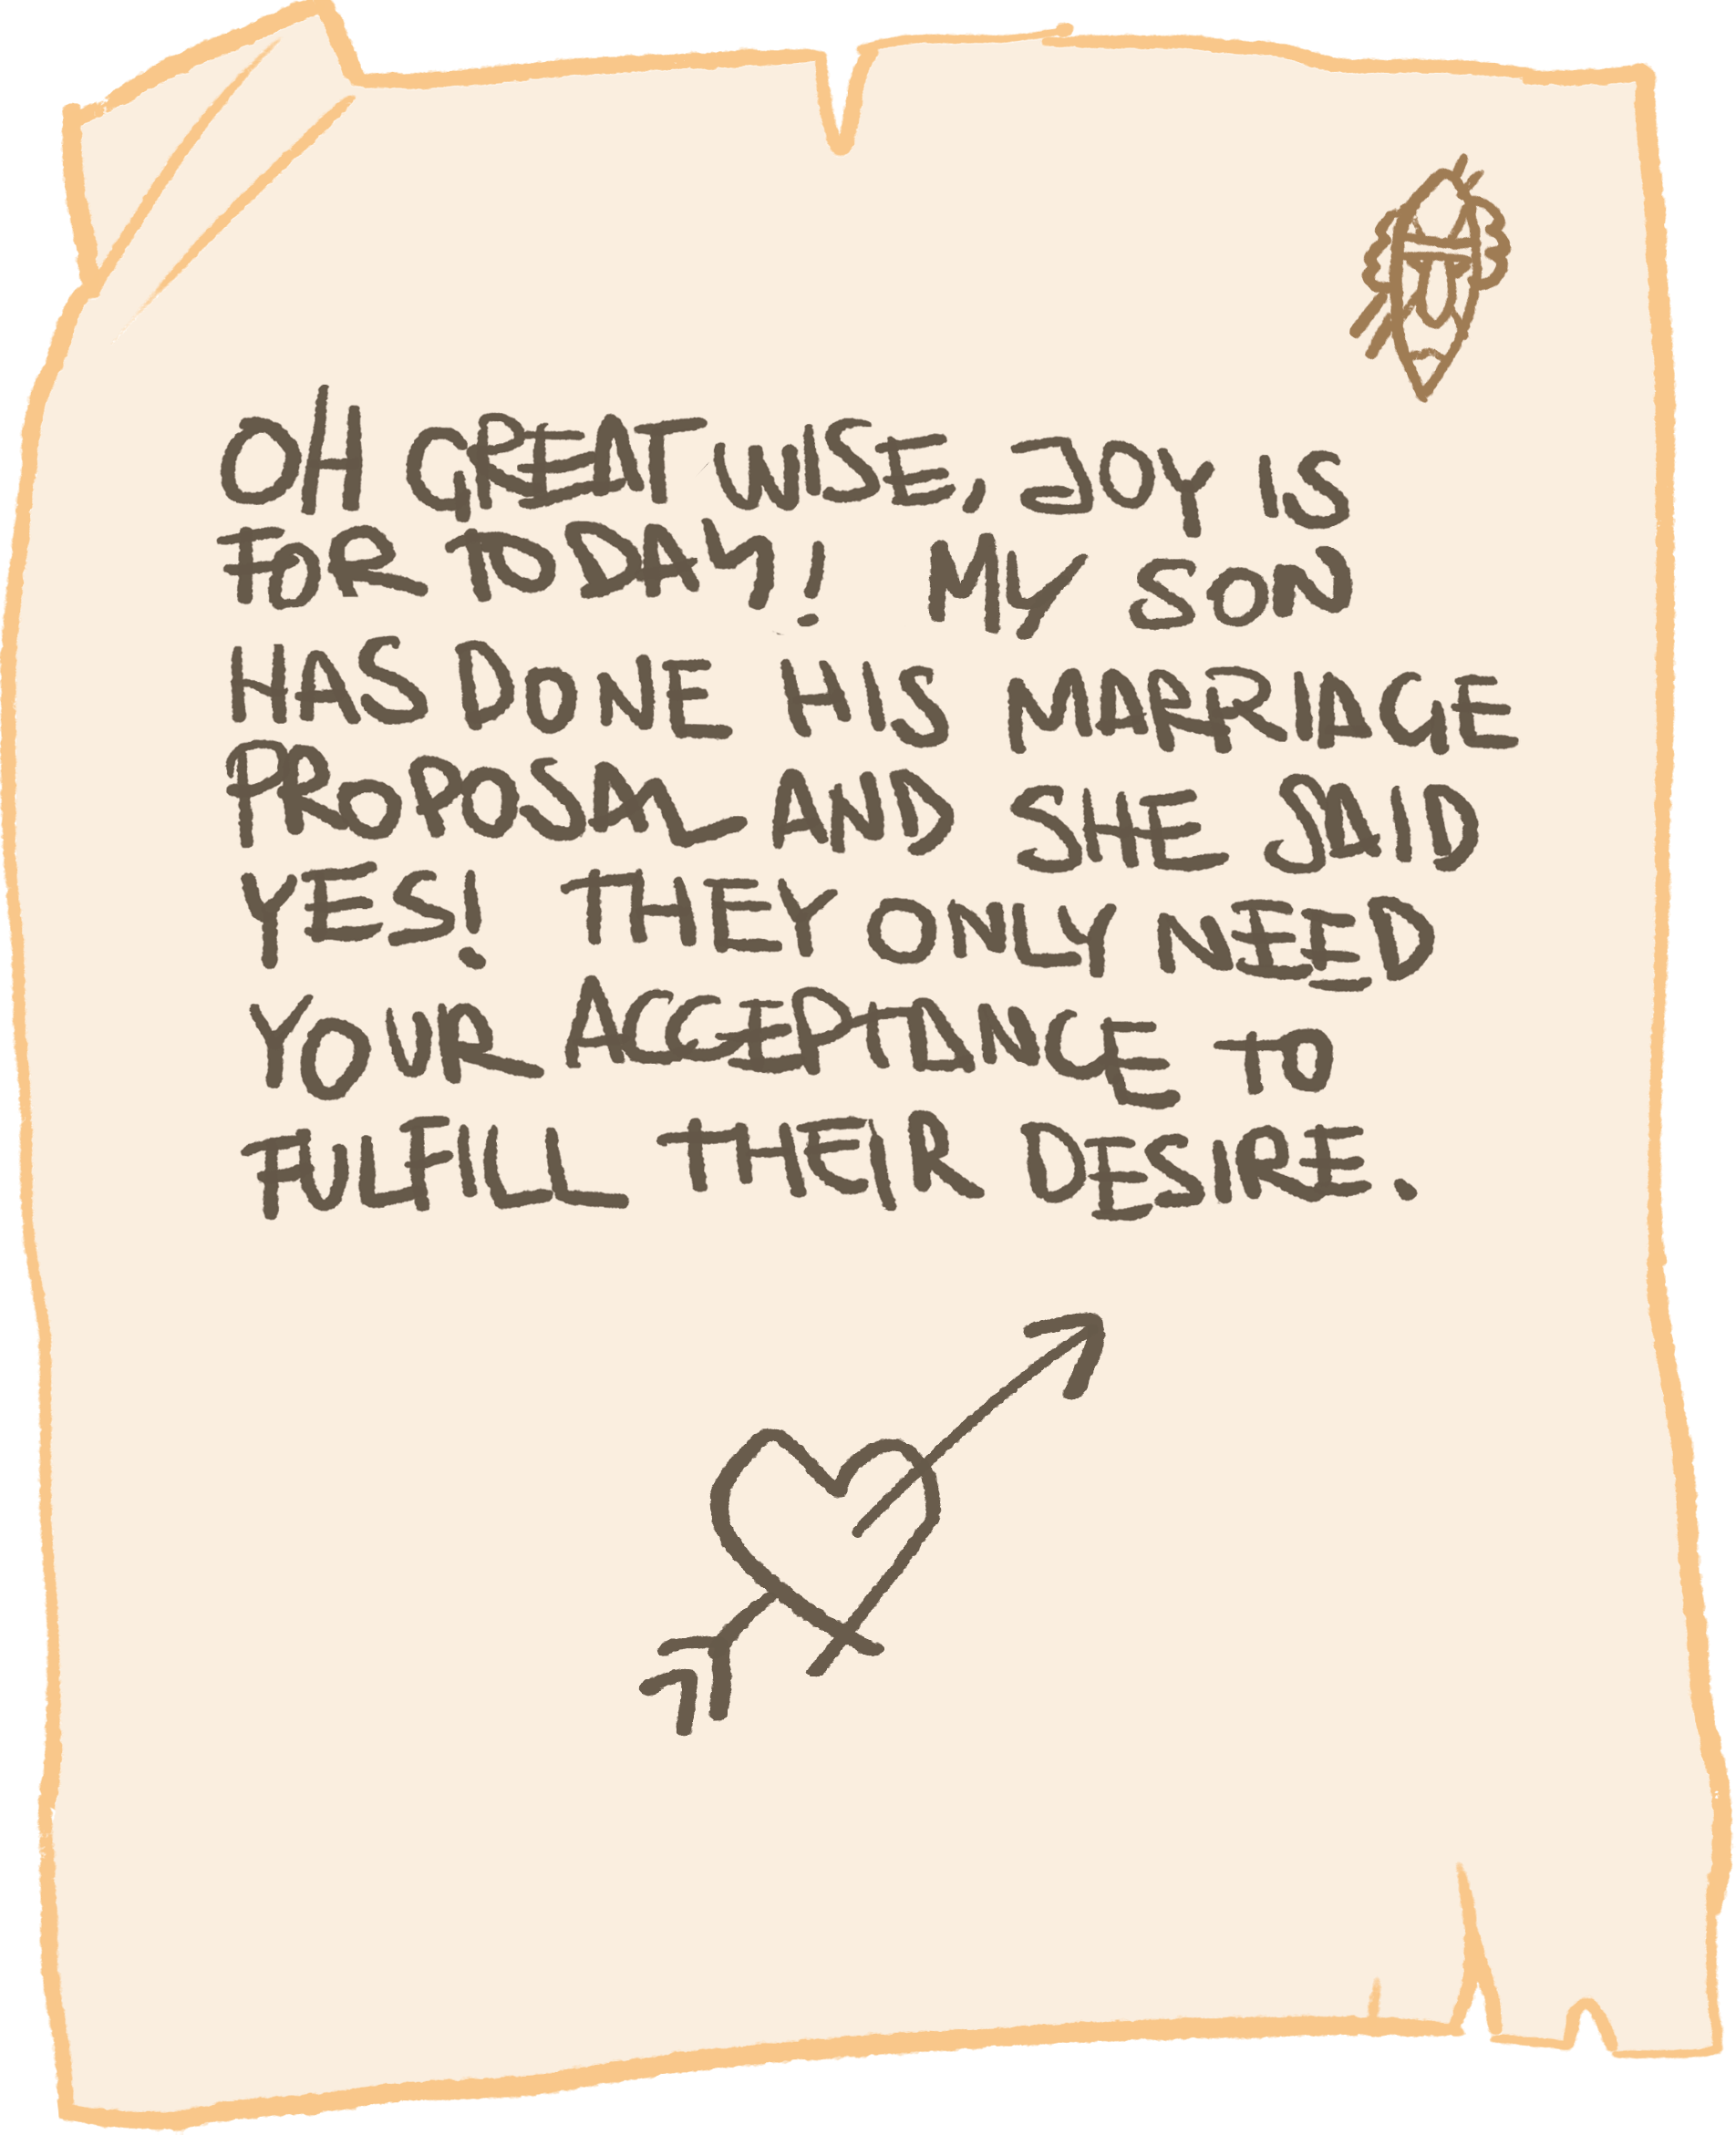 OH GREAT WISE, JOY IS
FOR TODAY! MY SON
HAS DONE HIS MARRIAGE
PROPOSAL AND SHE SAID
YES! THEY ONLY NEED
YOUR ACCEPTANCE TO
FULFILL THEIR DESIRE.